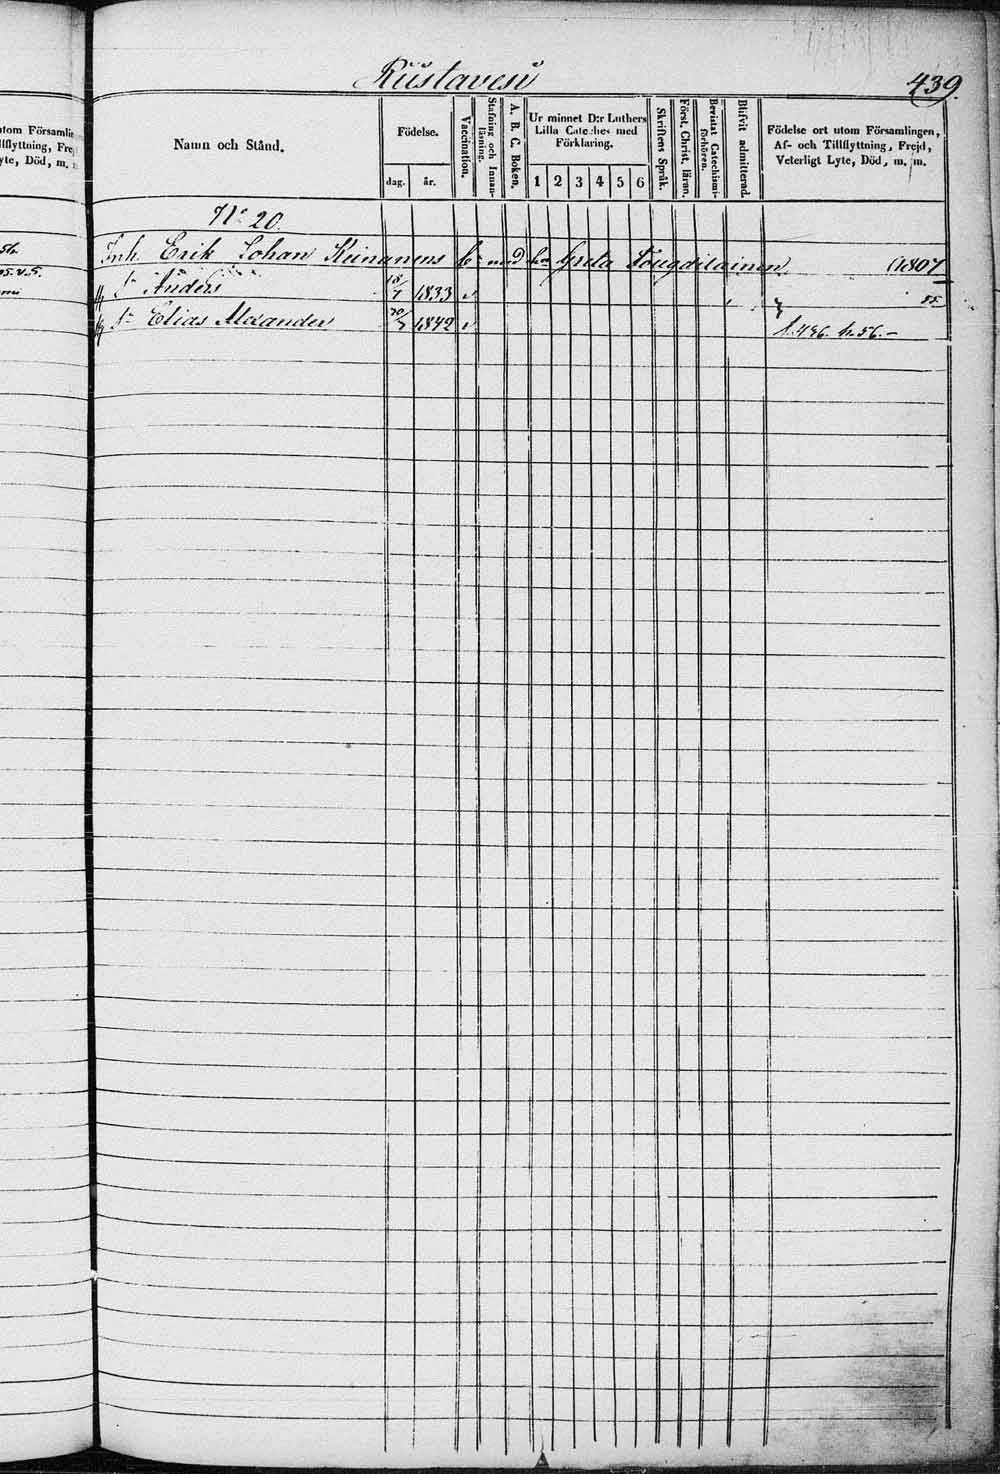 utom Församlin
llflyttning, Frej
yte, Död, m.
Rustavesi
439.
Namn och Stånd.
Födelse.
dag.
år.
Vaccination.
Stafning och Innan-
läsning.
A. B. C. Boken.
Ur minnet D:r Luthers
Lilla Cateches med
Förklaring.
1 2 3 4 5 6
Skriftens Språk.
Först. Christ. läran.
Bevistat Catechismi-
förhören.
Blifvit admitterad.
Födelse ort utom Församlingen,
Af- och Tillflyttning, Frejd,
Veterligt Lyte, Död, m. m.
No 20.
Inh. Erik Johan Keinanens b:r med h:u Greta Tougdilainen 1807
Sn Anders 18/7 1833 55
Sn Elias Alexander 30/7 1842 f. 436. fr. 56.-